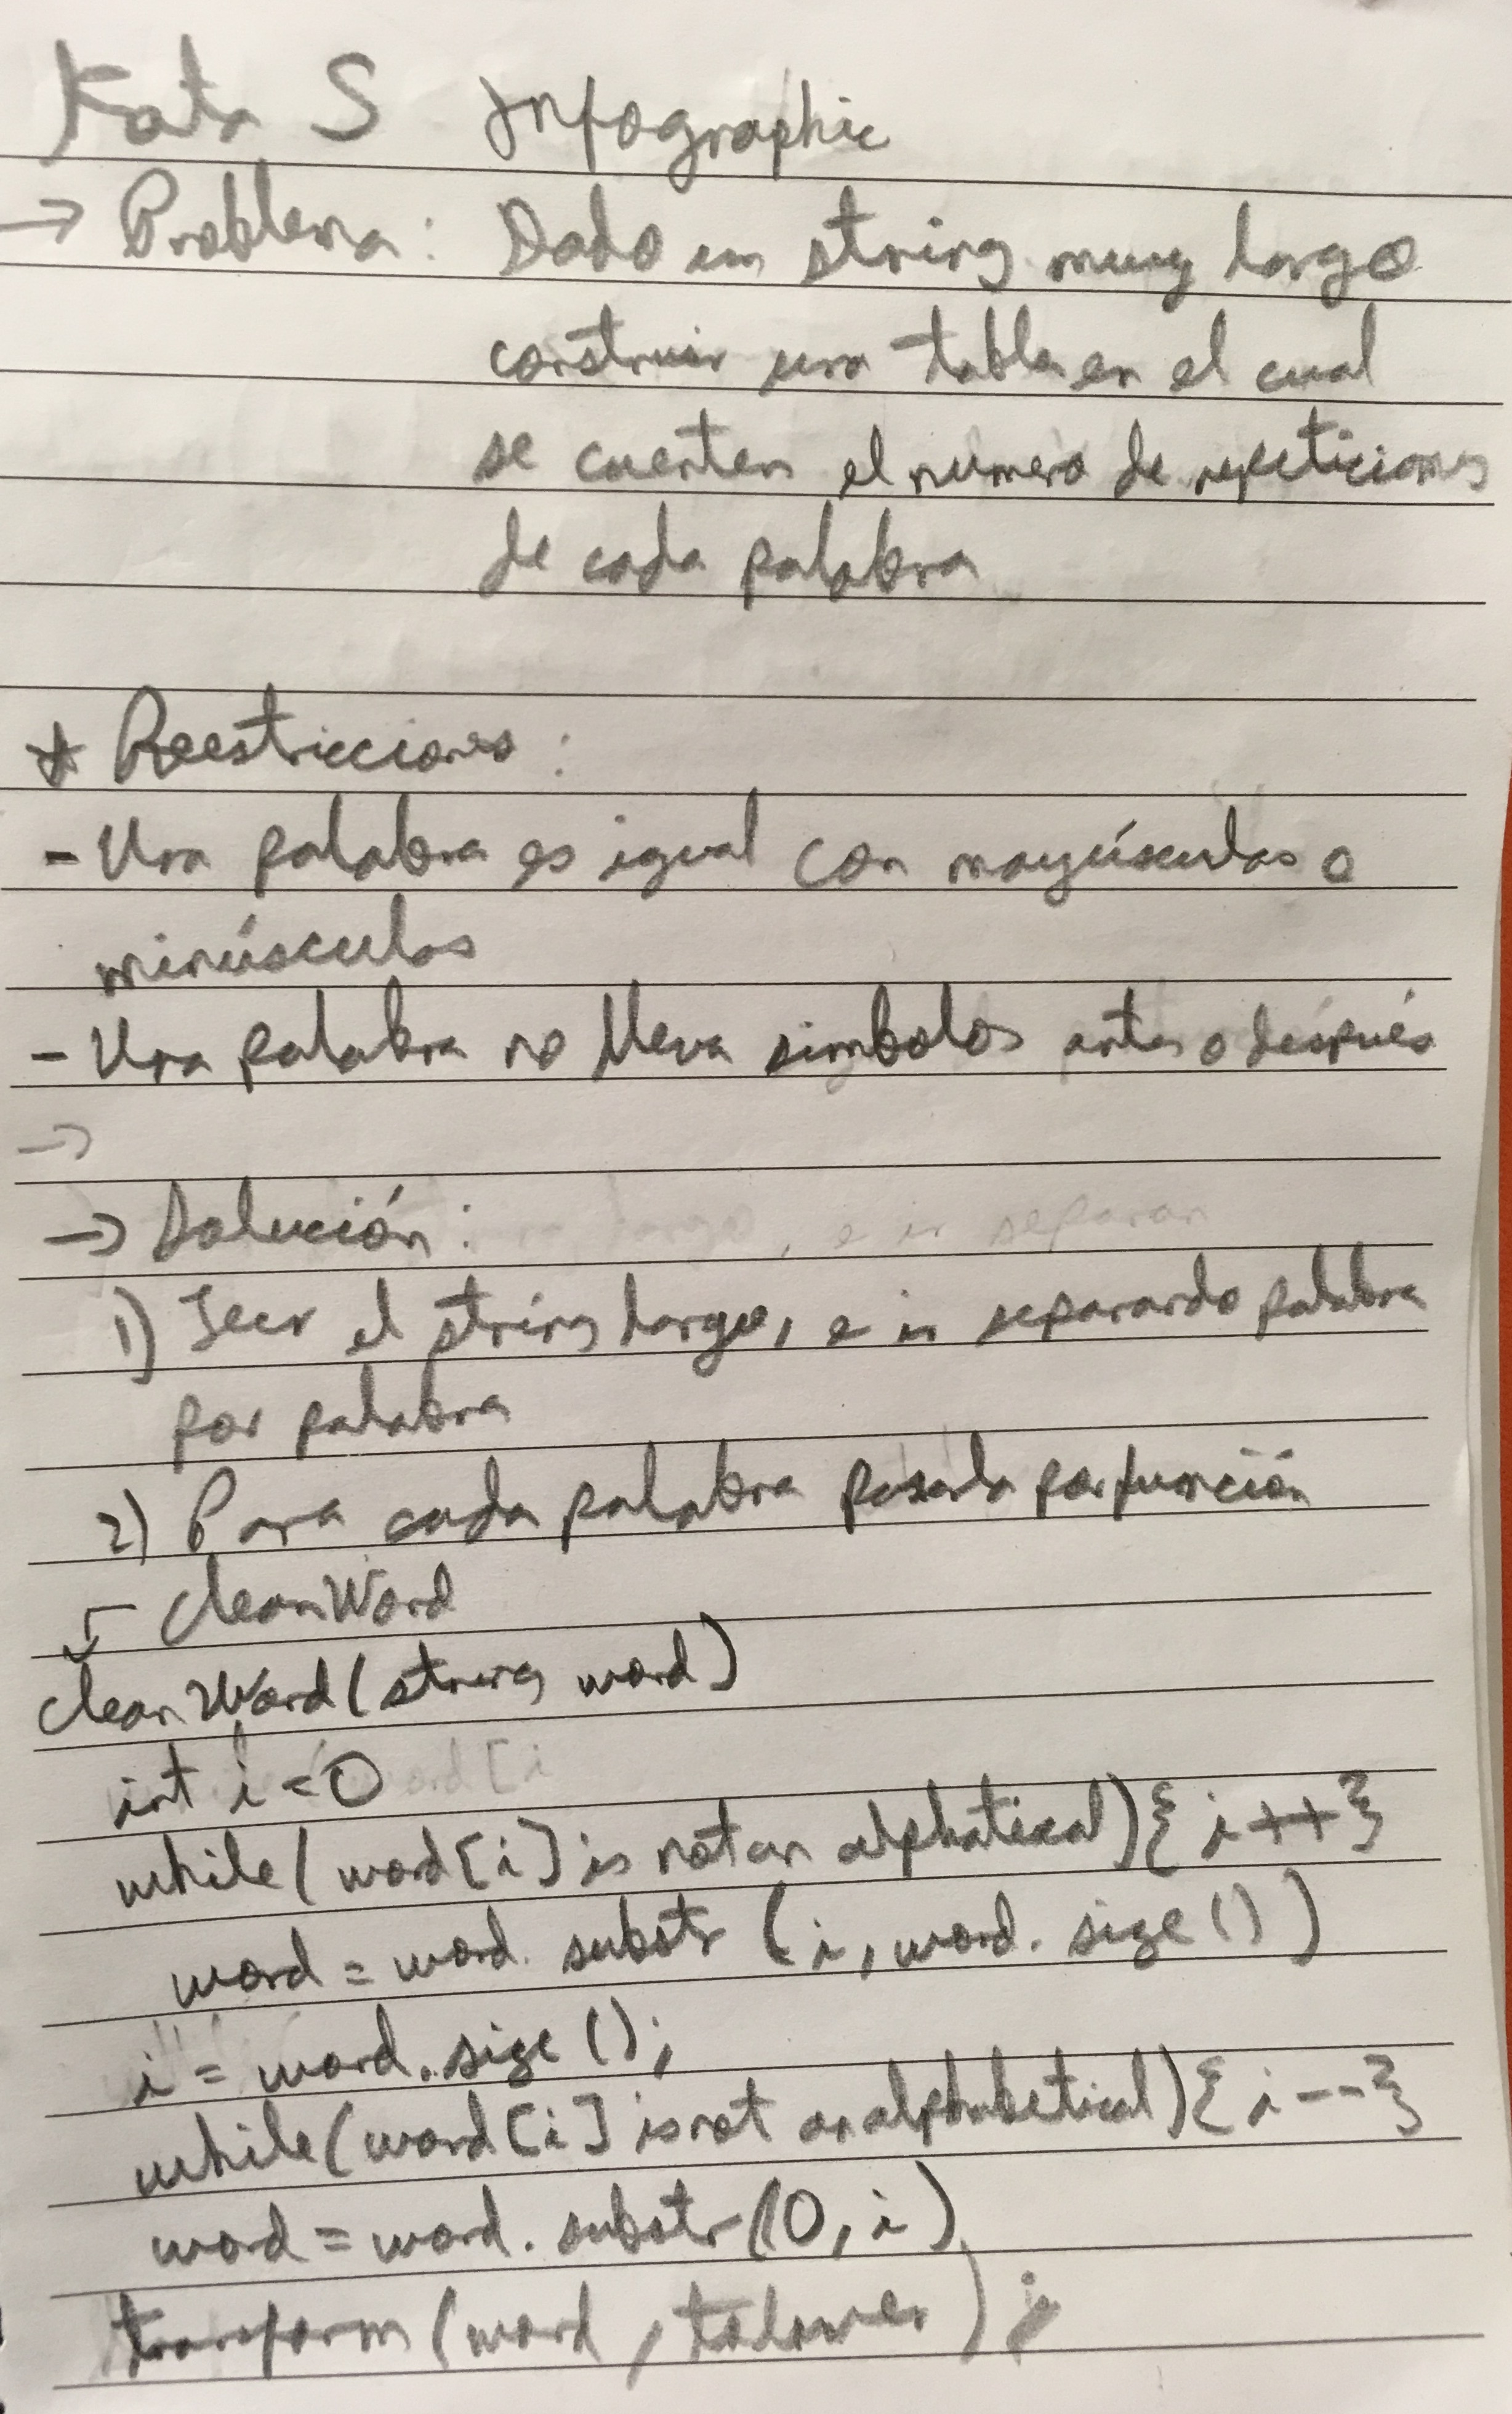 Kata 5 Infographic
→ Problema: Dado un string muy largo
construir una tabla en el cual
se cuenten el numero de repeticiones
de cada palabra
* Reestricciones:
- Una palabra es igual con mayúsculas o
minúsculas
- Una palabra no lleva simbolos antes o después
→
→ Solución:
1) Leer el string largo, e ir separando palabra
por palabra
2) Para cada palabra pasarla por función
- cleanWord
cleanWord(string word)
int i = 0
while(word[i] is not an alphatical){i++}
word = word.substr(i, word.size())
i = word.size();
while(word[i] is not an alphabetical){i--}
word = word.substr(0, i)
transform(word, tolower);